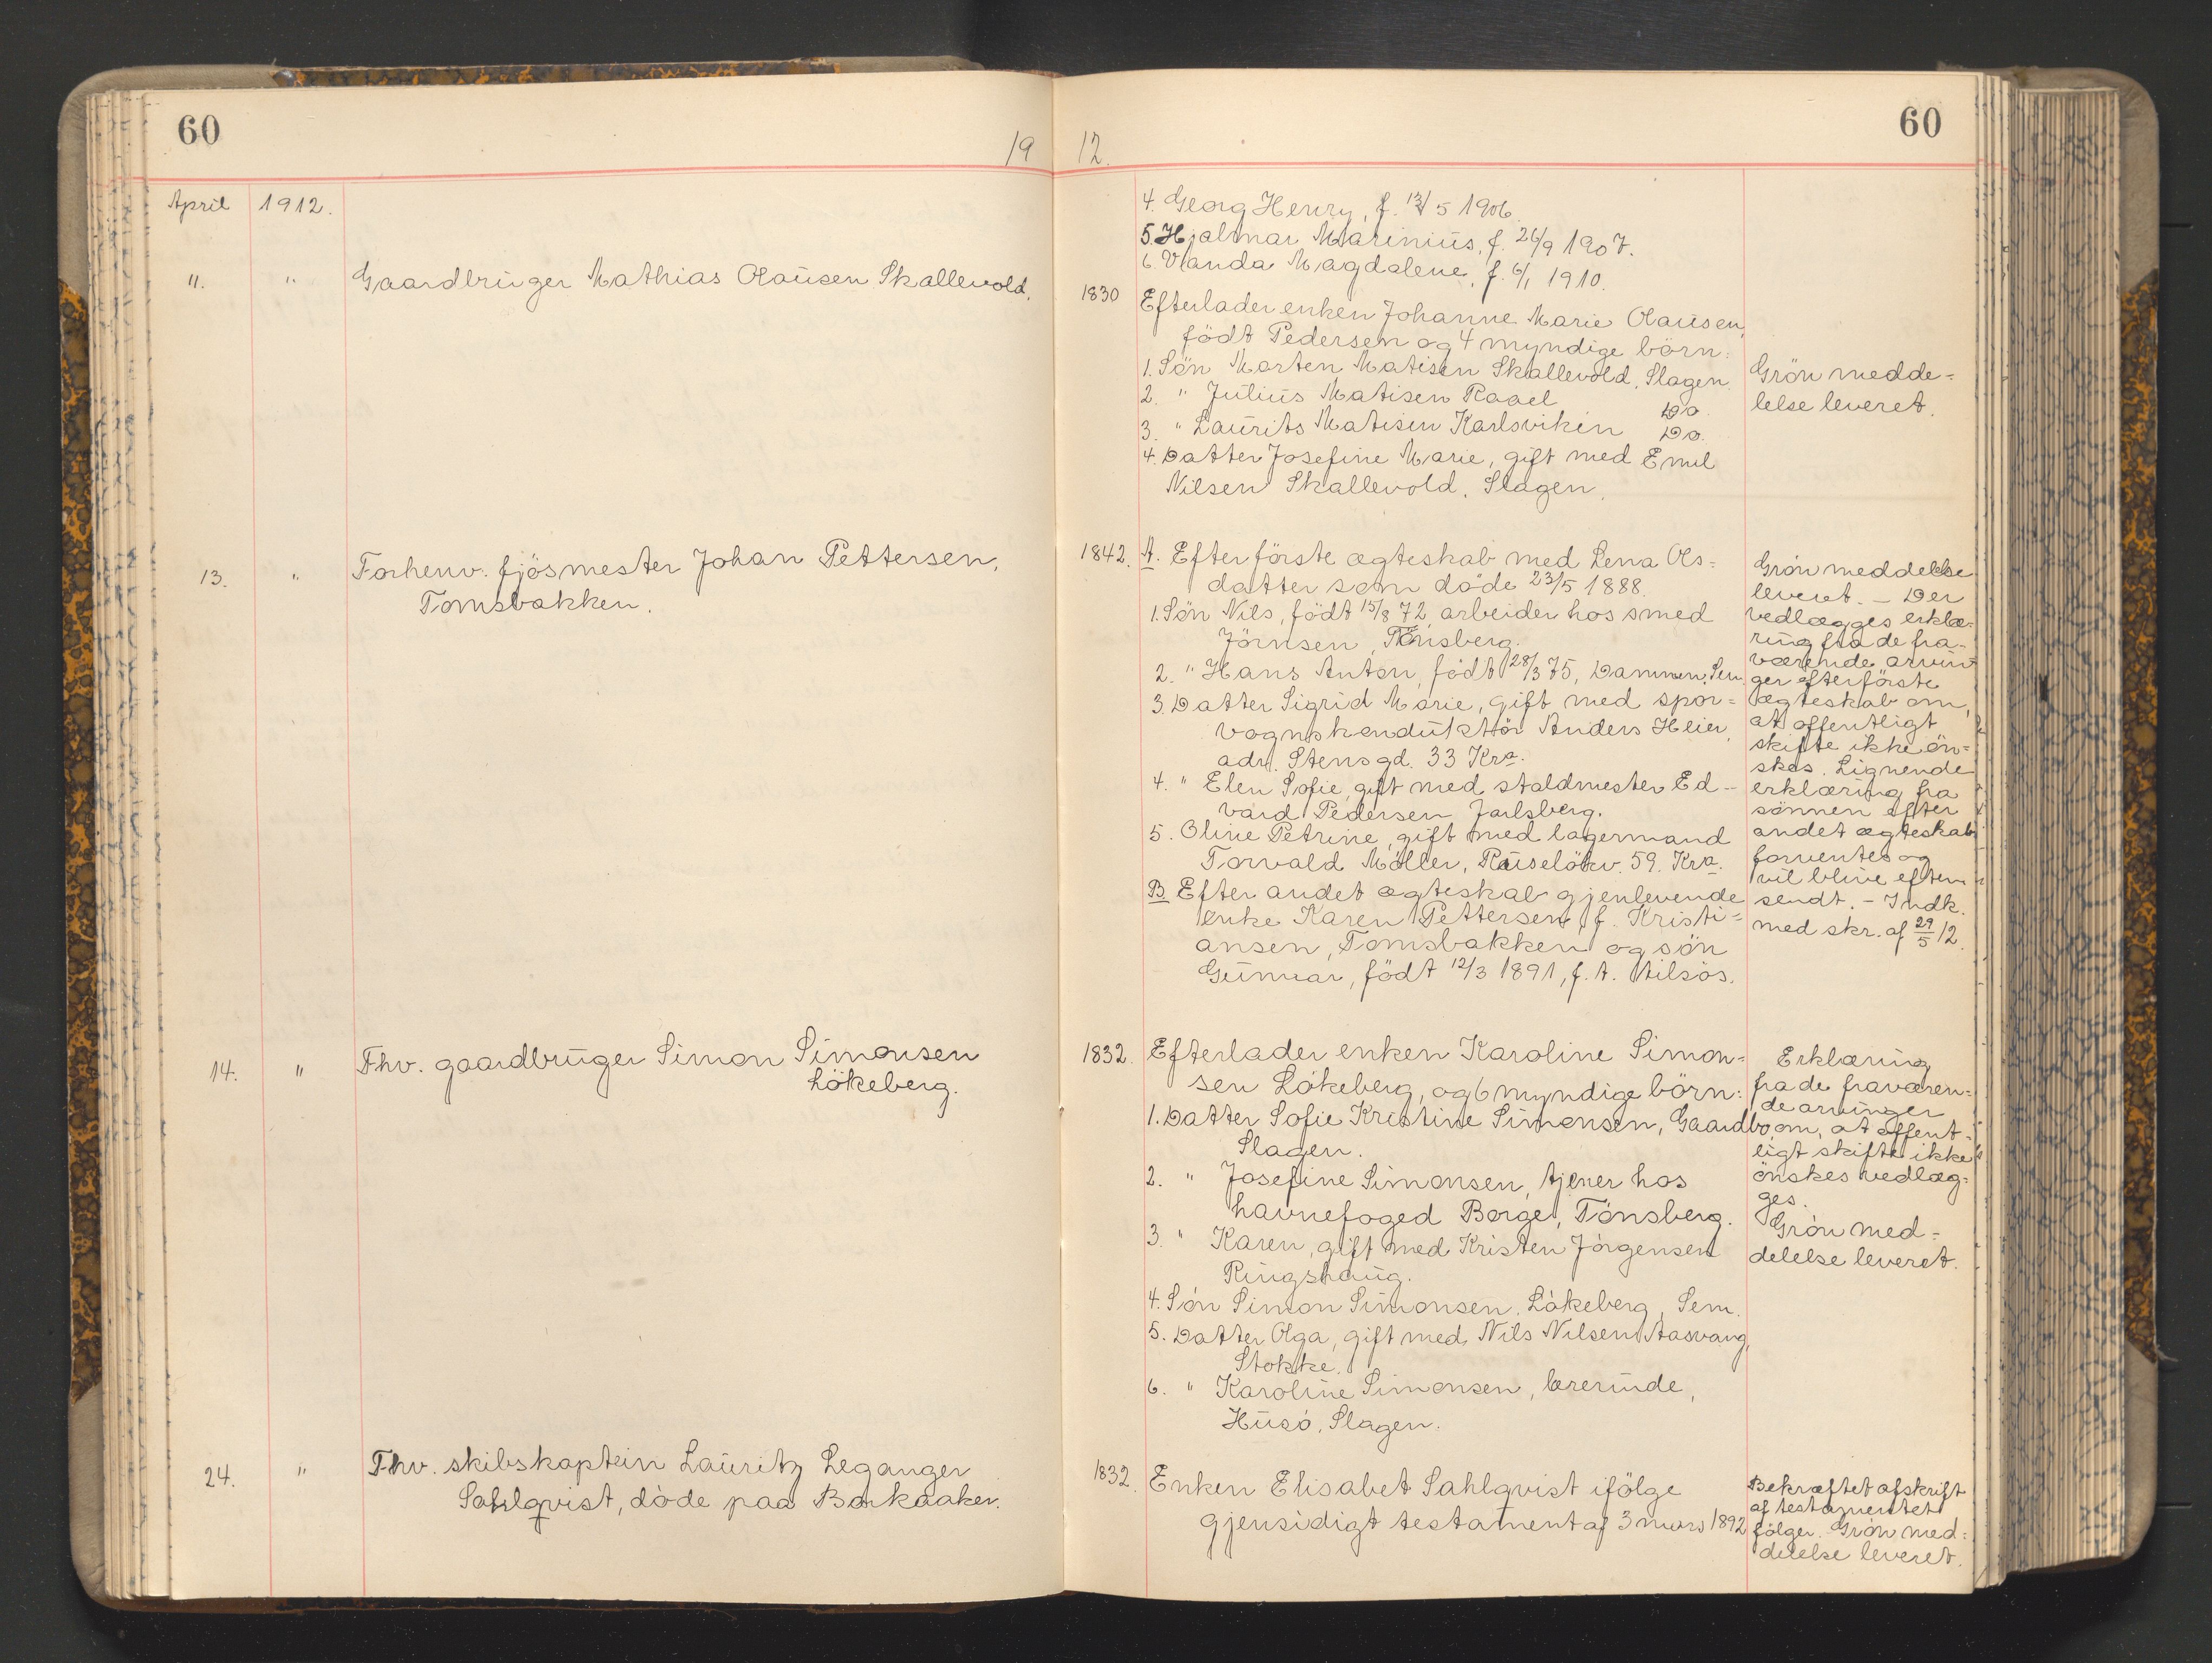 60
19
April 1912.
11. " Gaardbruger Mathias Olausen Skallevold.
13. " Forhenv. fjösmester Johan Pettersen,
Tomsbakken.
14. " Fhv. gaardbruger Simon Simonsen
Lökeberg.
24. " Fhv. skibskaptein Lauritz Leganger
Sahlqvist, döde paa Barkaaker.
12.
60
4. Georg Henry, f. 13/5 1906.
5. Hjalmar Marinius, f. 26/9 1907.
6. Vanda Magdalene, f. 6/1 1910.
1830 Efterlader enken Johanne Marie Olausen,
födt Pedersen og 4 myndige börn:
1. Sön Morten Matisen Skallevold, Slagen.
2. " Julius Matisen Raael Do.
3. " Laurits Matisen Karlsviken Do.
4. Datter Josefine Marie, gift med Emil
Nilsen Skallevold, Slagen.
Grön medde=
lelse leveret.
1842. A. Efter förste ægteskab med Lena Ols=
datter som döde 23/5 1888.
1. Sön Nils, födt 15/8 72, arbeider hos smed
Jörnsen, Tönsberg.
2. " Hans Anton, födt 28/3 75, Dammen, Sem.
3. Datter Sigrid Marie, gift med spor=
vognskonduktör Anders Heier,
adr. Stensgd. 33 Kra.
4. " Elen Sofie, gift med staldmester Ed-
vard Pedersen Jarlsberg.
5. Oline Petrine, gift med lagermand
Torvald Möller, Ruselökv. 59. Kra.
B. Efter andet ægteskab gjenlevende
enke Karen Pettersen, f. Kristi=
ansen, Tomsbakken og sön
Gunnar, födt 12/3 1891, f. t. tilsös.
Grön meddelelse
leveret. - Der
vedlægges erklæ-
ring fra de fra-
værende arvin
ger efter förste
ægteskab om,
at offentligt
skifte ikke ön=
skes. Lignende
erklæring fra
sönnen efter
andet ægteskab
forventes og
vil blive efter
sendt. - Indk.
med skr. af 29/5 12.
1832. Efterlader enken Karoline Simon=
sen Lökeberg, og 6 myndige börn:
1. Datter Sofie Kristine Simonsen, Gaardbo,
Slagen.
2. " Josefine Simonsen, tjener hos
havnefoged Borge, Tönsberg.
3. " Karen, gift med Kristen Jörgensen
Ringshaug.
4. Sön Simon Simonsen, Lökeberg, Sem.
5. Datter Olga, gift med Nils Nilsen Aasvang,
Stokke.
6. " Karoline Simonsen, lærerinde,
Husö, Slagen.
Erklæring
fra de fraværen=
de arvinger
om, at offent=
ligt skifte ikke
önskes vedlæg=
ges.
Grön med=
delelse leveret.
1832. Enken Elisabet Sahlqvist ifölge
gjensidigt testament af 3 mars 1892
Bekræftet afskrift
af testamentet
fölger. Grön med=
delelse leveret.